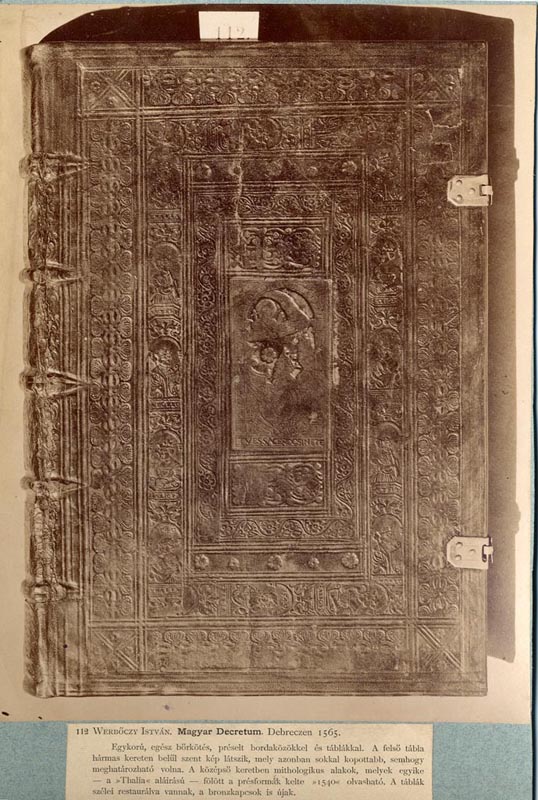 112
112 WERBŐCZY ISTVÁN. Magyar Decretum. Debreczen 1565.
Egykorú, egész bőrkötés, préselt bordaközökkel és táblákkal. A felső tábla
hármas kereten belül szent kép látszik, mely azonban sokkal kopottabb, semhogy
meghatározható volna. A középső keretben mithologikus alakok, melyek egyike
— a »Thalia« aláírású — fölött a présformák kelte »1540« olvasható. A táblák
szélei restaurálva vannak, a bronzkapcsok is újak.